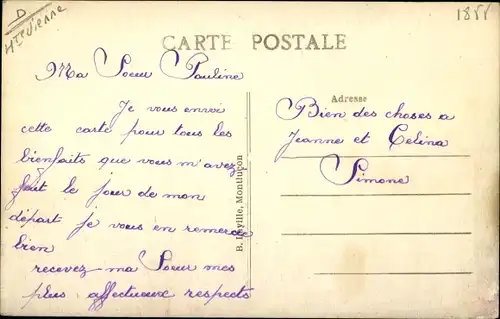 D
Hte Vienne
1851
CARTE POSTALE
Ma Soeur Pauline
Je vous envoi
cette carte pour tous les
bienfaits que vous m'avez
fait le jour de mon
départ je vous en remercie
bien
recevez ma Soeur mes
plus affectueux respects
B. Leyille, Montluçon
Adresse
Bien des choses a
Jeanne et Celina
Simone